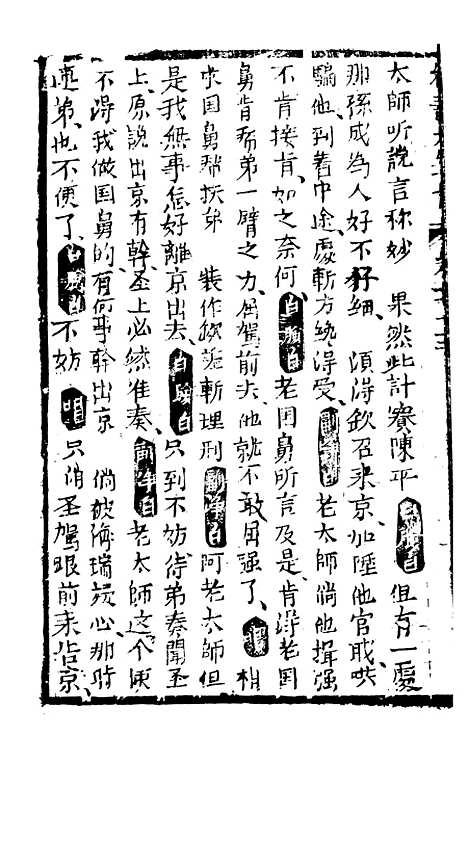 太師听説言称妙　果然此計賽陳平　白　白但有一慮
那孫成為人好不仔細　須得欽召来京加陞他官职哄
騙他到着中途處斬方纔得受　副　白老太師倘他揖强
不肯接肯如之奈何　白　白老国舅所言及是肯得老国
舅肯為弟一臂之力屈駕前去他就不敢屈强了　相
求国舅帮扶弟　装作欽差斬理刑　副净白阿老太師但
是我無事怎好離京出去　白　白只到不妨待弟奏聞圣
上原説出京有幹圣上必然准奏　副净白老太師这个便
不得我做国舅的有何事幹出京　倘被海瑞疑心那時
連弟也不便了　白　白不妨　唱　只消圣駕眼前来告京